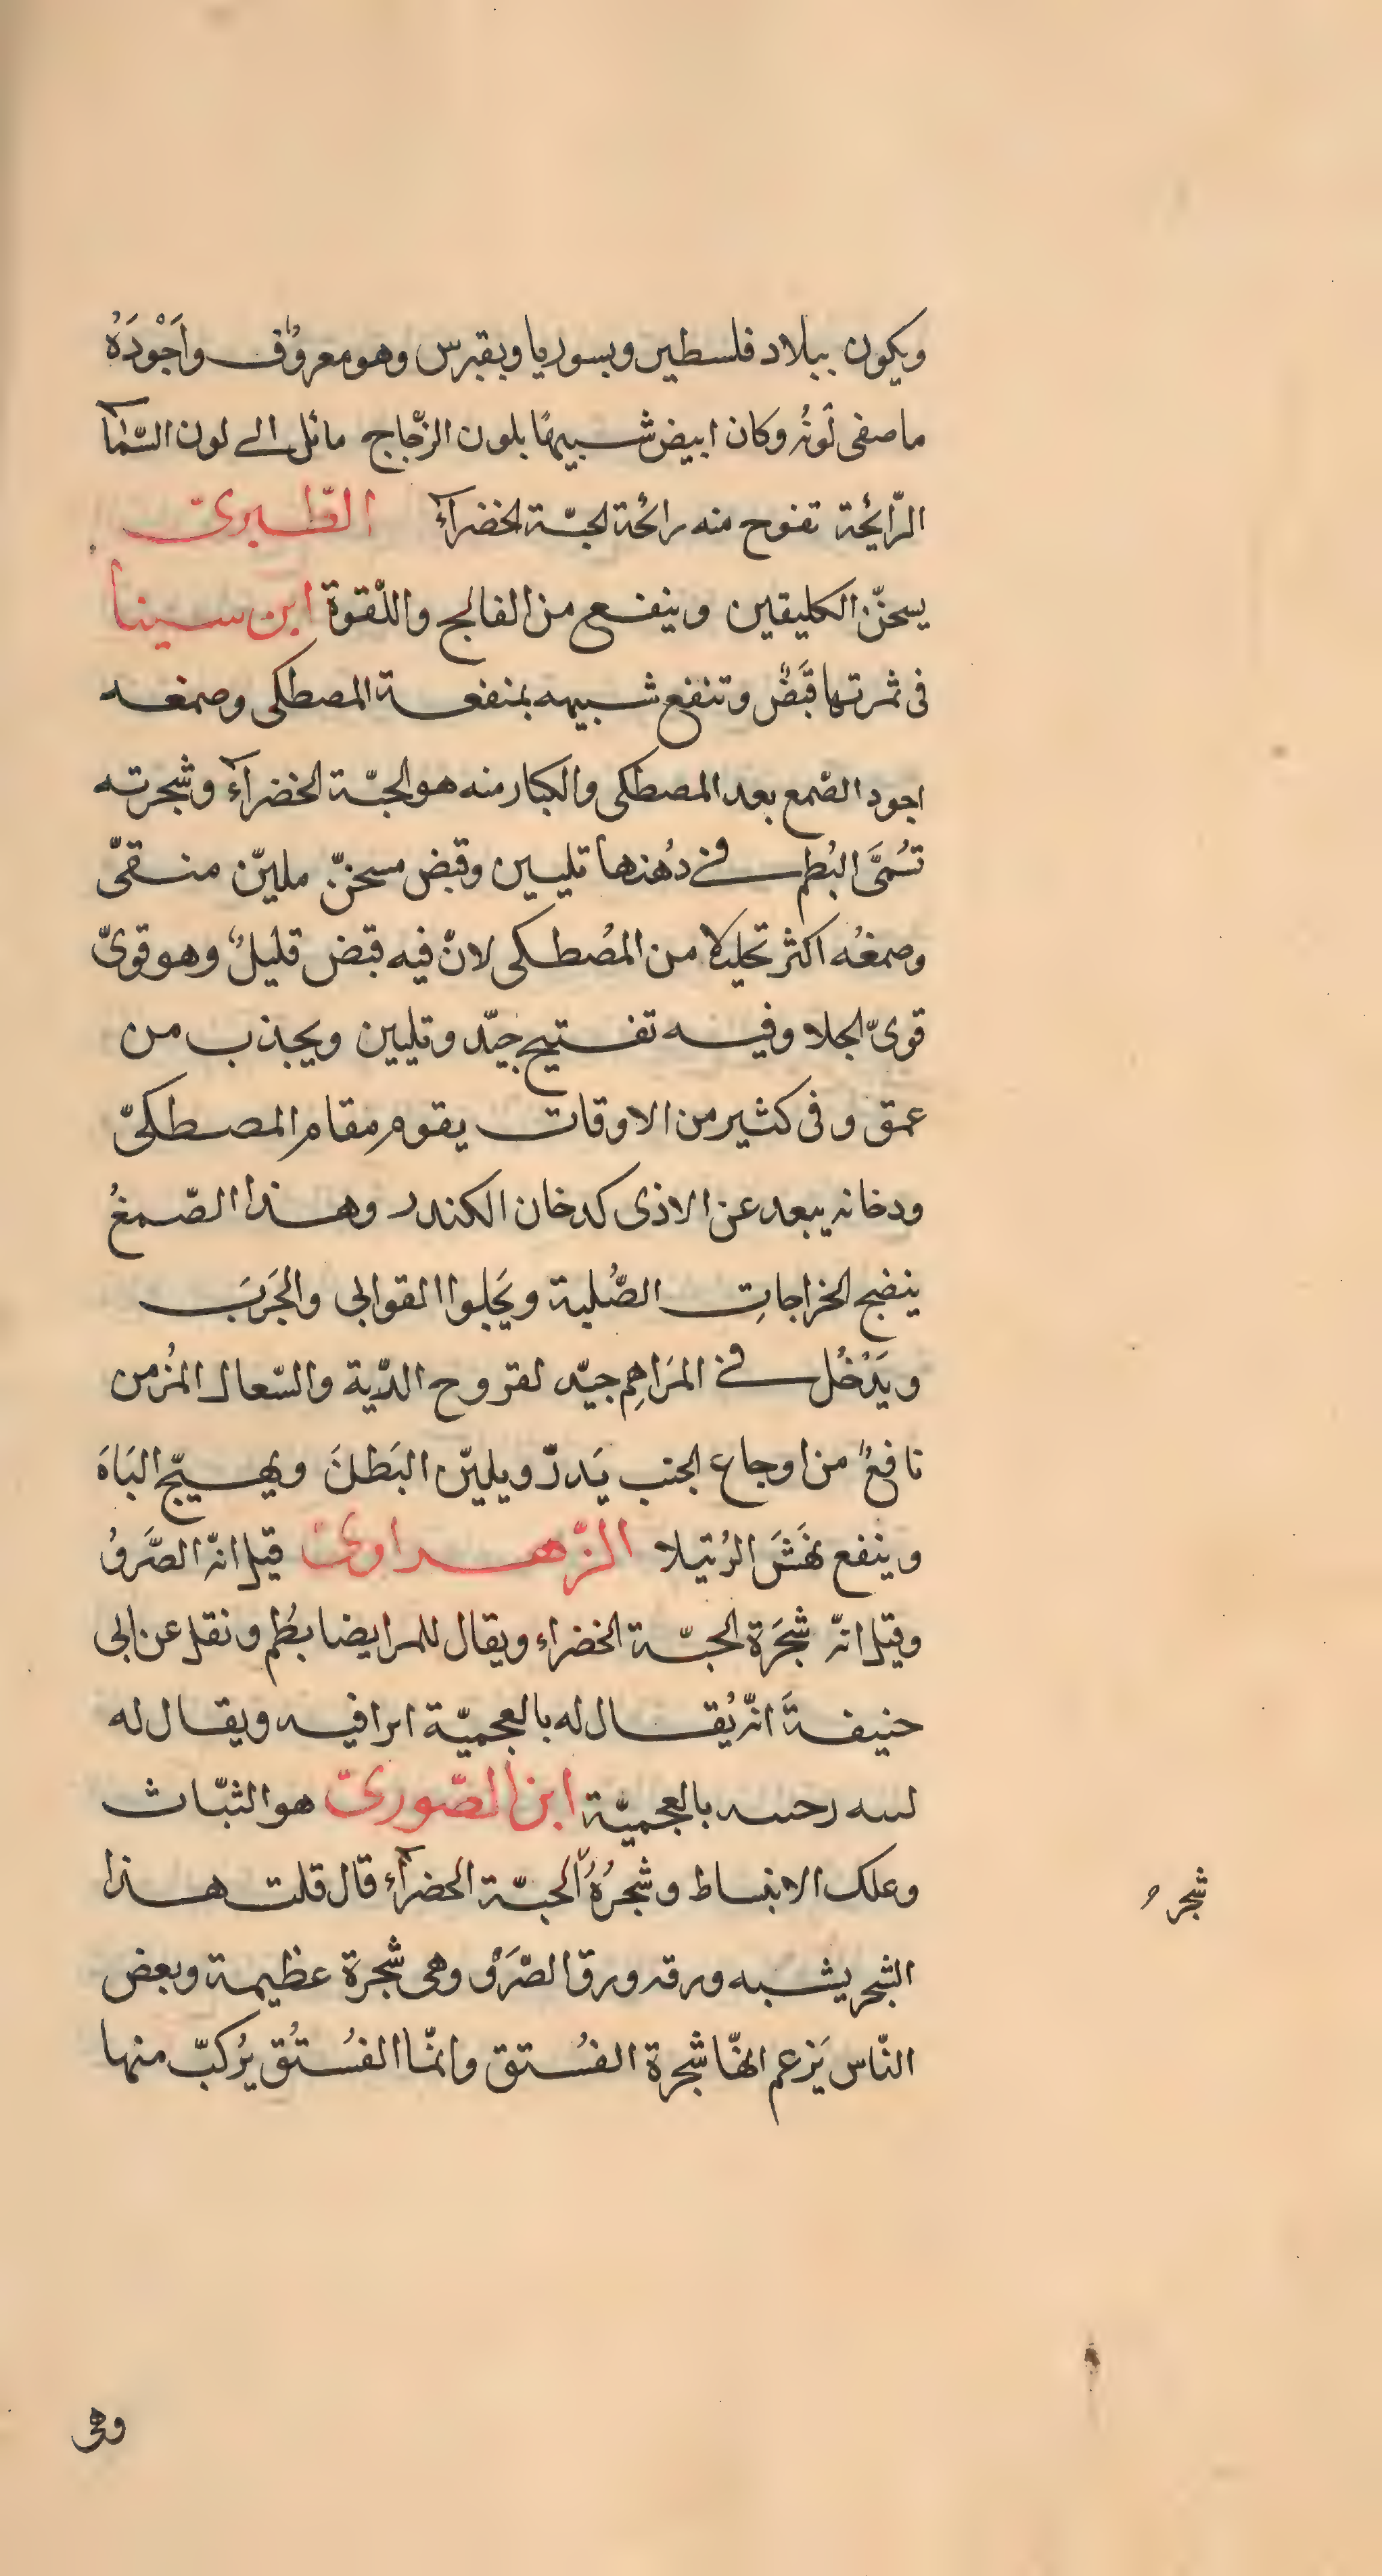 ويكون ببلاد فلسطين وبسوريا وبقبرس وهو معروُف واَجْودَهُ
ما صفى لَونُه وكان ابيض شبيهًا بلون الزّجاج مائل الے لون السّمآ
الرّايحَة تفوح منه رائحَة الحبّة الخضرآء الطّبرىّ
يسخّن الكليتين وينفع من الفالج واللّقوة ابن سينا
فى ثمرتها قَبَضٌ وتنفع شبيهه بمنفعة المصطكى وصمغه
اجود الصّمع بعد المصطكى والكبار منه هو الحبّة الخضرآء وشجرته
تسُمَّى البُطم فے دُهنها تليين وقبض مسخّن مليّن منقىّ
وصمغُه اكثر تحليلا من المصُطكى لانّ فيه قبض قليلٌ وهو قوىّ
قوىّ الجلا وفيه تفتيح جيّد وتليين ويجذب من
عمق وفى كثير من الاوقات يقوم مقام المصطكىّ
ودخانه يبعد عن الاذى كدخان الكندر وهذا الصّمغُ
ينضج الخراجاتِ الصُّلبة ويَجلوا القوابى والجَرَبَ
ويَدْخُل فے المَراهِم جيّد لقروح الرّية والسّعال المُزمن
نافعٌ من اوجاع الجنب يَدرّ ويليّن البَطنَ ويهيّج البَاهَ
وينفع نهَشَ الرُتيلا الزّهراوىّ قيل انّه الصَّروُ
وقيل انّه شجَرَة الحبّة الخضراء ويقال للمر ايضا بُطم ونقل عن ابى
حنيفةَ انّه يُقال له بالعجميّة ابرافيه ويقال له
لسه رحسه بالعجميّة ابن الصّورىّ هو الثبّاث
وعلك الانبساط وشجرُهُ الحبّة الحضرآء قال قلت هذا
شجر
الشجر يشبه ورقه ورق الصّرَوْ وهى شجرة عظيمة وبعض
النّاس يَزعم انهّا شجرة الفسُتق وانمّا الفسُتُق يُركبّ منها
وهى